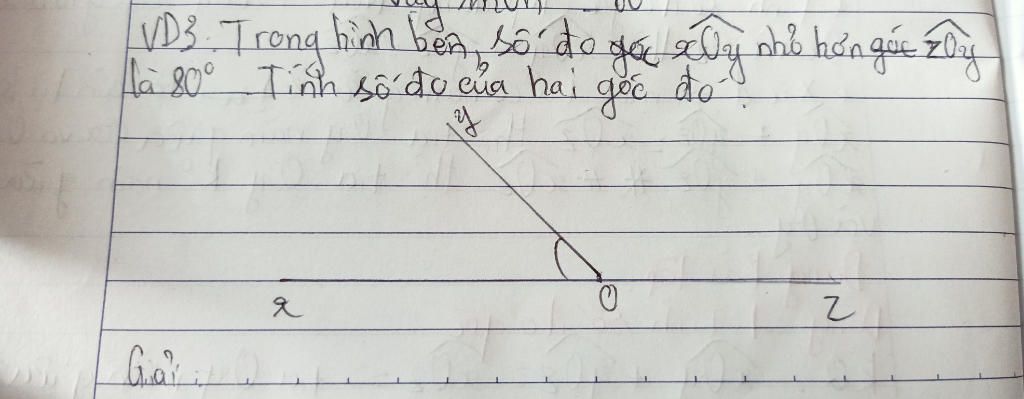 VD3. Trong hình bên, số đo góc xOy nhỏ hơn góc zOy
là 80° Tính số đo của hai góc đó.
y
x O z
Giải: